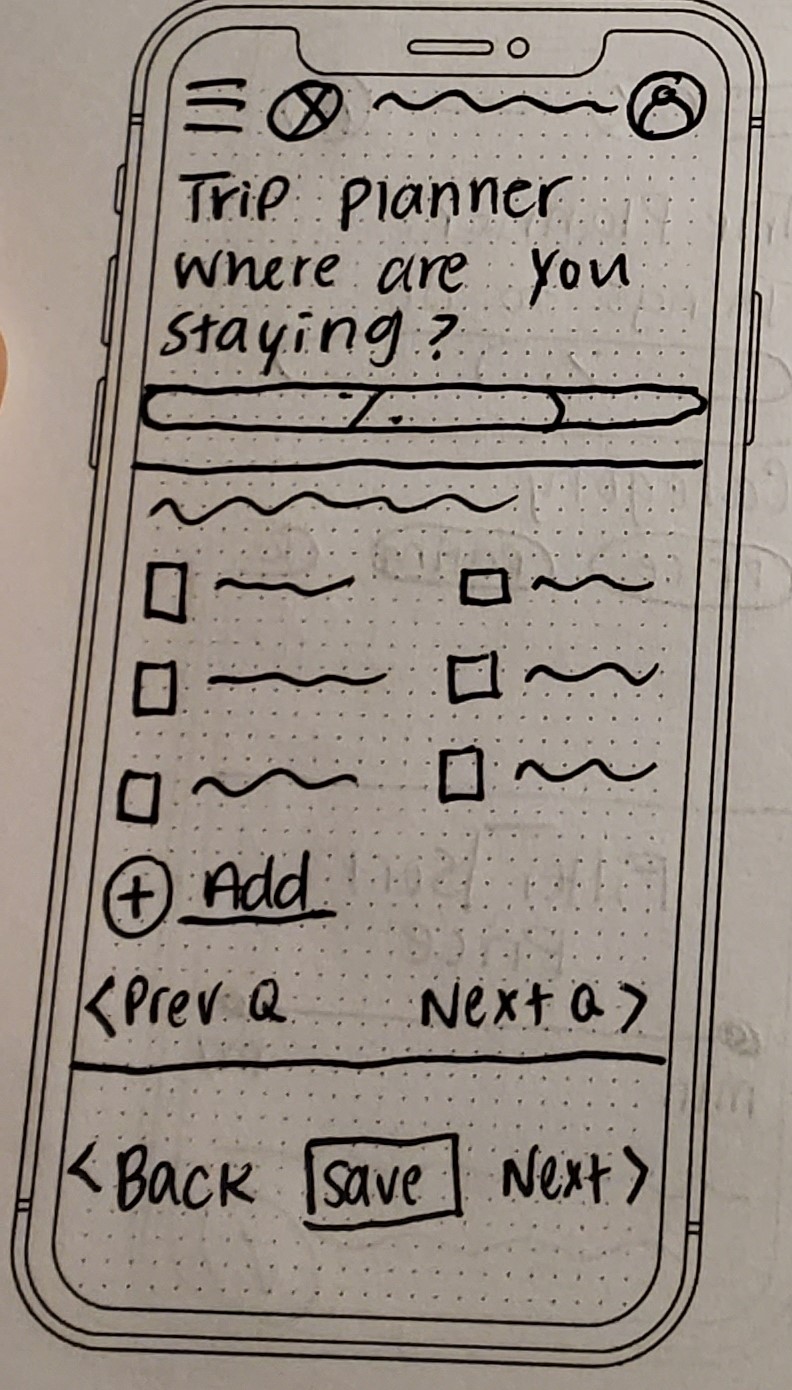 Trip planner
where are you
staying?
%
+ Add
<Prev Q Next Q >
< Back save Next >